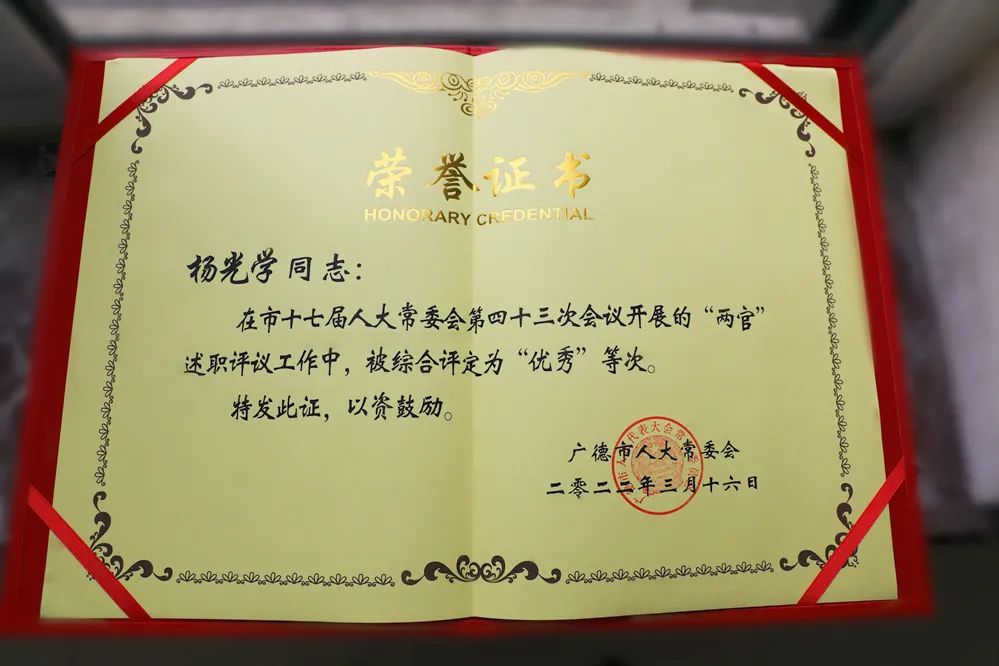 荣誉证书
HONORARY CREDENTIAL
杨光学同志：
在市十七届人大常委会第四十三次会议开展的“两官”
述职评议工作中，被综合评定为“优秀”等次。
特发此证，以资鼓励。
广德市人大常委会
二零二二年三月十六日